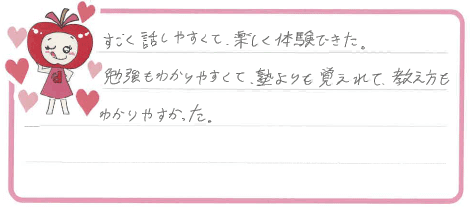 すごく話しやすくて、楽しく体験できた。
勉強もわかりやすくて、塾よりも覚えれて、教え方も
わかりやすかった。